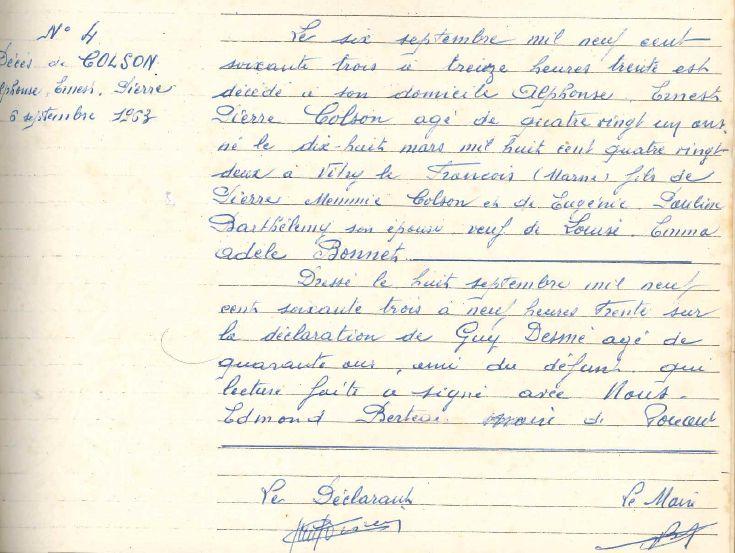 N° 4
Décès de COLSON
Alphonse, Ernest, Pierre
6 septembre 1963
Le six septembre mil neuf cent
soixante trois à treize heures trente est
décédé à son domicile Alphonse, Ernest
Pierre Colson agé de quatre vingt un ans
né le dix-huit mars mil huit cent quatre vingt
deux à Vitry le François (Marne) fils de
Pierre Memmie Colson et de Eugénie Pauline
Barthélemy son épouse veuf de Louise Emma
adèle Bonnet
Dressé le huit septembre mil neuf
cent soixante trois à neuf heures trente sur
la déclaration de Guy Desmé agé de
quarante ans, ami du défunt qui
lecture faite a signé avec Nous
Edmond maire de
Le Déclarant
Le Maire